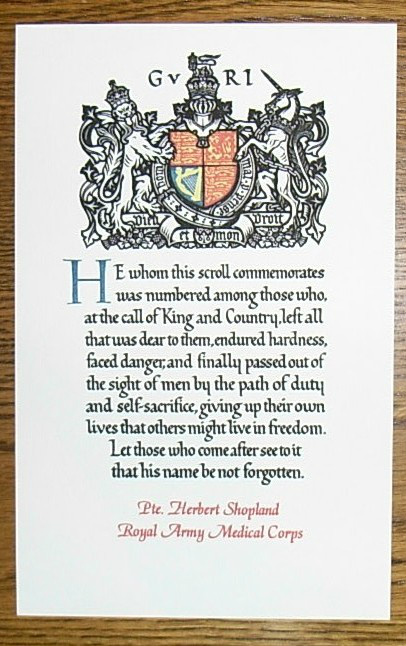 G V R I
Dieu et mon Droit
HE whom this scroll commemorates
was numbered among those who,
at the call of King and Country, left all
that was dear to them, endured hardness,
faced danger, and finally passed out of
the sight of men by the path of duty
and self-sacrifice, giving up their own
lives that others might live in freedom.
Let those who come after see to it
that his name be not forgotten.
Pte. Herbert Shopland
Royal Army Medical Corps